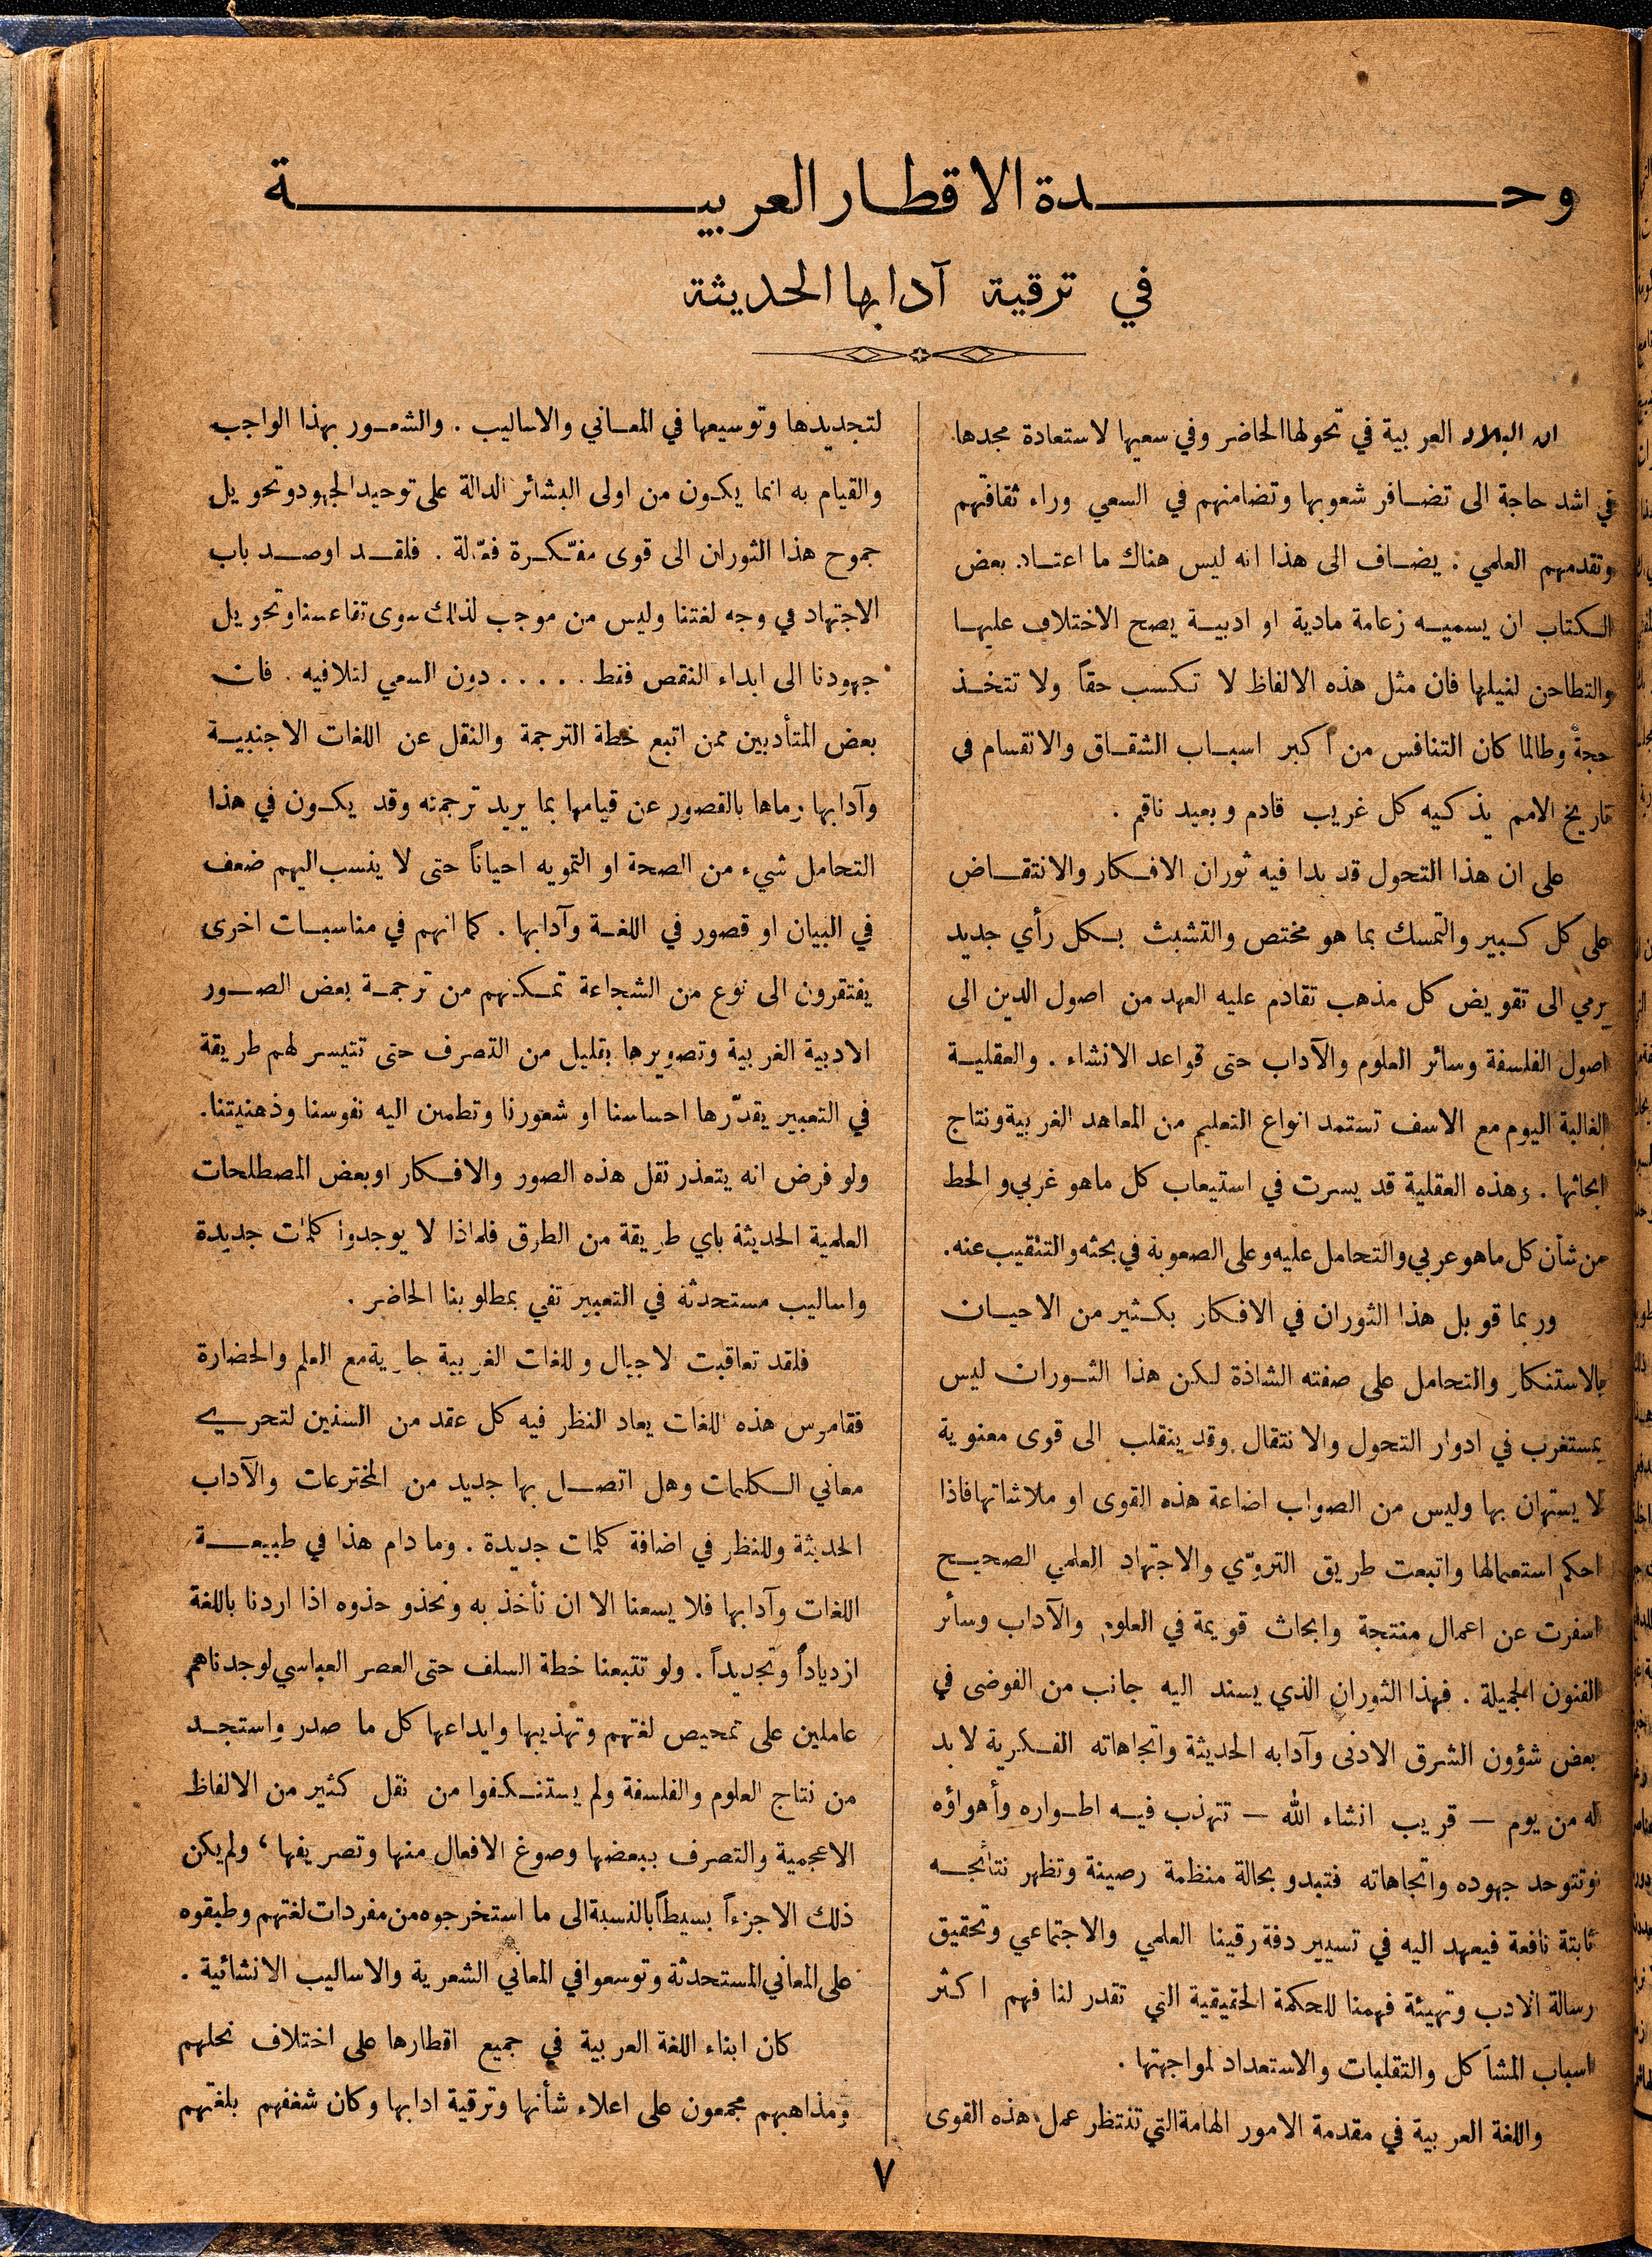 وحدة الاقطار العربية
في ترقية آدابها الحديثة
ان البلاد العربية في تحولها الحاضر وفي سعيها لاستعادة مجدها
في اشد حاجة الى تضافر شعوبها وتضامنهم في السعي وراء ثقافتهم
وتقدمهم العلمي . يضاف الى هذا انه ليس هناك ما اعتاد بعض
الكتاب ان يسميه زعامة مادية او ادبية يصح الاختلاف عليها
والتطاحن لنيلها فان مثل هذه الالفاظ لا تكسب حقاً ولا تتخذ
حجةً وطالما كان التنافس من اكبر اسباب الشقاق والانقسام في
تاريخ الامم يذكيه كل غريب قادم وبعيد ناقم .
على ان هذا التحول قد بدا فيه ثوران الافكار والانتقاض
على كل كبير والتمسك بما هو مختص والتشبث بكل رأي جديد
يرمي الى تقويض كل مذهب تقادم عليه العهد من اصول الدين الى
اصول الفلسفة وسائر العلوم والآداب حتى قواعد الانشاء . والعقلية
الغالبة اليوم مع الاسف تستمد انواع التعليم من المعاهد الغربية ونتاج
ابحاثها . وهذه العقلية قد يسرت في استيعاب كل ماهو غربي والحط
من شأن كل ماهو عربي والتحامل عليه وعلى الصعوبة في بحثه والتنقيب عنه.
وربما قوبل هذا الثوران في الافكار بكثير من الاحيان
بالاستنكار والتحامل على صفته الشاذة لكن هذا الثوران ليس
بمستغرب في ادوار التحول والانتقال وقد ينقلب الى قوى معنوية
لا يستهان بها وليس من الصواب اضاعة هذه القوى او ملاشاتها فاذا
احكم استعمالها واتبعت طريق التروّي والاجتهاد العلمي الصحيح
اسفرت عن اعمال منتجة وابحاث قويمة في العلوم والآداب وسائر
الفنون الجميلة . فهذا الثوران الذي يسند اليه جانب من الفوضى في
بعض شؤون الشرق الادنى وآدابه الحديثة واتجاهاته الفكرية لا بد
له من يوم — قريب انشاء الله — تتهذب فيه اطواره وأهواؤه
وتتوحد جهوده واتجاهاته فتبدو بحالة منظمة رصينة وتظهر نتائجه
ثابتة نافعة فيعهد اليه في تسيير دفة رقينا العلمي والاجتماعي وتحقيق
رسالة الادب وتهيئة فهمنا للحكمة الحقيقية التي تقدر لنا فهم اكثر
اسباب المشاكل والتقلبات والاستعداد لمواجهتها .
واللغة العربية في مقدمة الامور الهامة التي تنتظر عمل هذه القوى
لتجديدها وتوسيعها في المعاني والاساليب . والشعور بهذا الواجب
والقيام به انما يكون من اولى البشائر الدالة على توحيد الجهود وتحويل
جموح هذا الثوران الى قوى مفكّرة فعّالة . فلقد اوصد باب
الاجتهاد في وجه لغتنا وليس من موجب لذلك سوى تقاعسنا وتحويل
جهودنا الى ابداء النقص فقط . . . . . دون السعي لتلافيه . فان
بعض المتأدبين ممن اتبع خطة الترجمة والنقل عن اللغات الاجنبية
وآدابها رماها بالقصور عن قيامها بما يريد ترجمته وقد يكون في هذا
التحامل شيء من الصحة او التمويه احياناً حتى لا ينسب اليهم ضعف
في البيان او قصور في اللغة وآدابها . كما انهم في مناسبات اخرى
يفتقرون الى نوع من الشجاعة تمكنهم من ترجمة بعض الصور
الادبية الغربية وتصويرها بقليل من التصرف حتى تتيسر لهم طريقة
في التعبير يقدّرها احساسنا او شعورنا وتطمئن اليه نفوسنا وذهنيتنا.
ولو فرض انه يتعذر نقل هذه الصور والافكار او بعض المصطلحات
العلمية الحديثة باي طريقة من الطرق فلماذا لا يوجدوا كلمات جديدة
واساليب مستحدثة في التعبير تفي بمطلوبنا الحاضر .
فلقد تعاقبت الاجيال واللغات الغربية جارية مع العلم والحضارة
فقاموس هذه اللغات يعاد النظر فيه كل عقد من السنين لتحري
معاني الكلمات وهل اتصل بها جديد من المخترعات والآداب
الحديثة وللنظر في اضافة كلمات جديدة . وما دام هذا في طبيعة
اللغات وآدابها فلا يسعنا الا ان نأخذ به ونحذو حذوه اذا اردنا باللغة
ازدياداً وتجديداً . ولو تتبعنا خطة السلف حتى العصر العباسي لوجدناهم
عاملين على تمحيص لغتهم وتهذيبها وايداعها كل ما صدر واستجد
من نتاج العلوم والفلسفة ولم يستنكفوا من نقل كثير من الالفاظ
الاعجمية والتصرف ببعضها وصوغ الافعال منها وتصريفها ، ولم يكن
ذلك الا جزءاً بسيطاً بالنسبة الى ما استخرجوه من مفردات لغتهم وطبقوه
على المعاني المستحدثة وتوسعوا في المعاني الشعرية والاساليب الانشائية .
كان ابناء اللغة العربية في جميع اقطارها على اختلاف نحلهم
ومذاهبهم مجمعون على اعلاء شأنها وترقية ادابها وكان شغفهم بلغتهم
٧